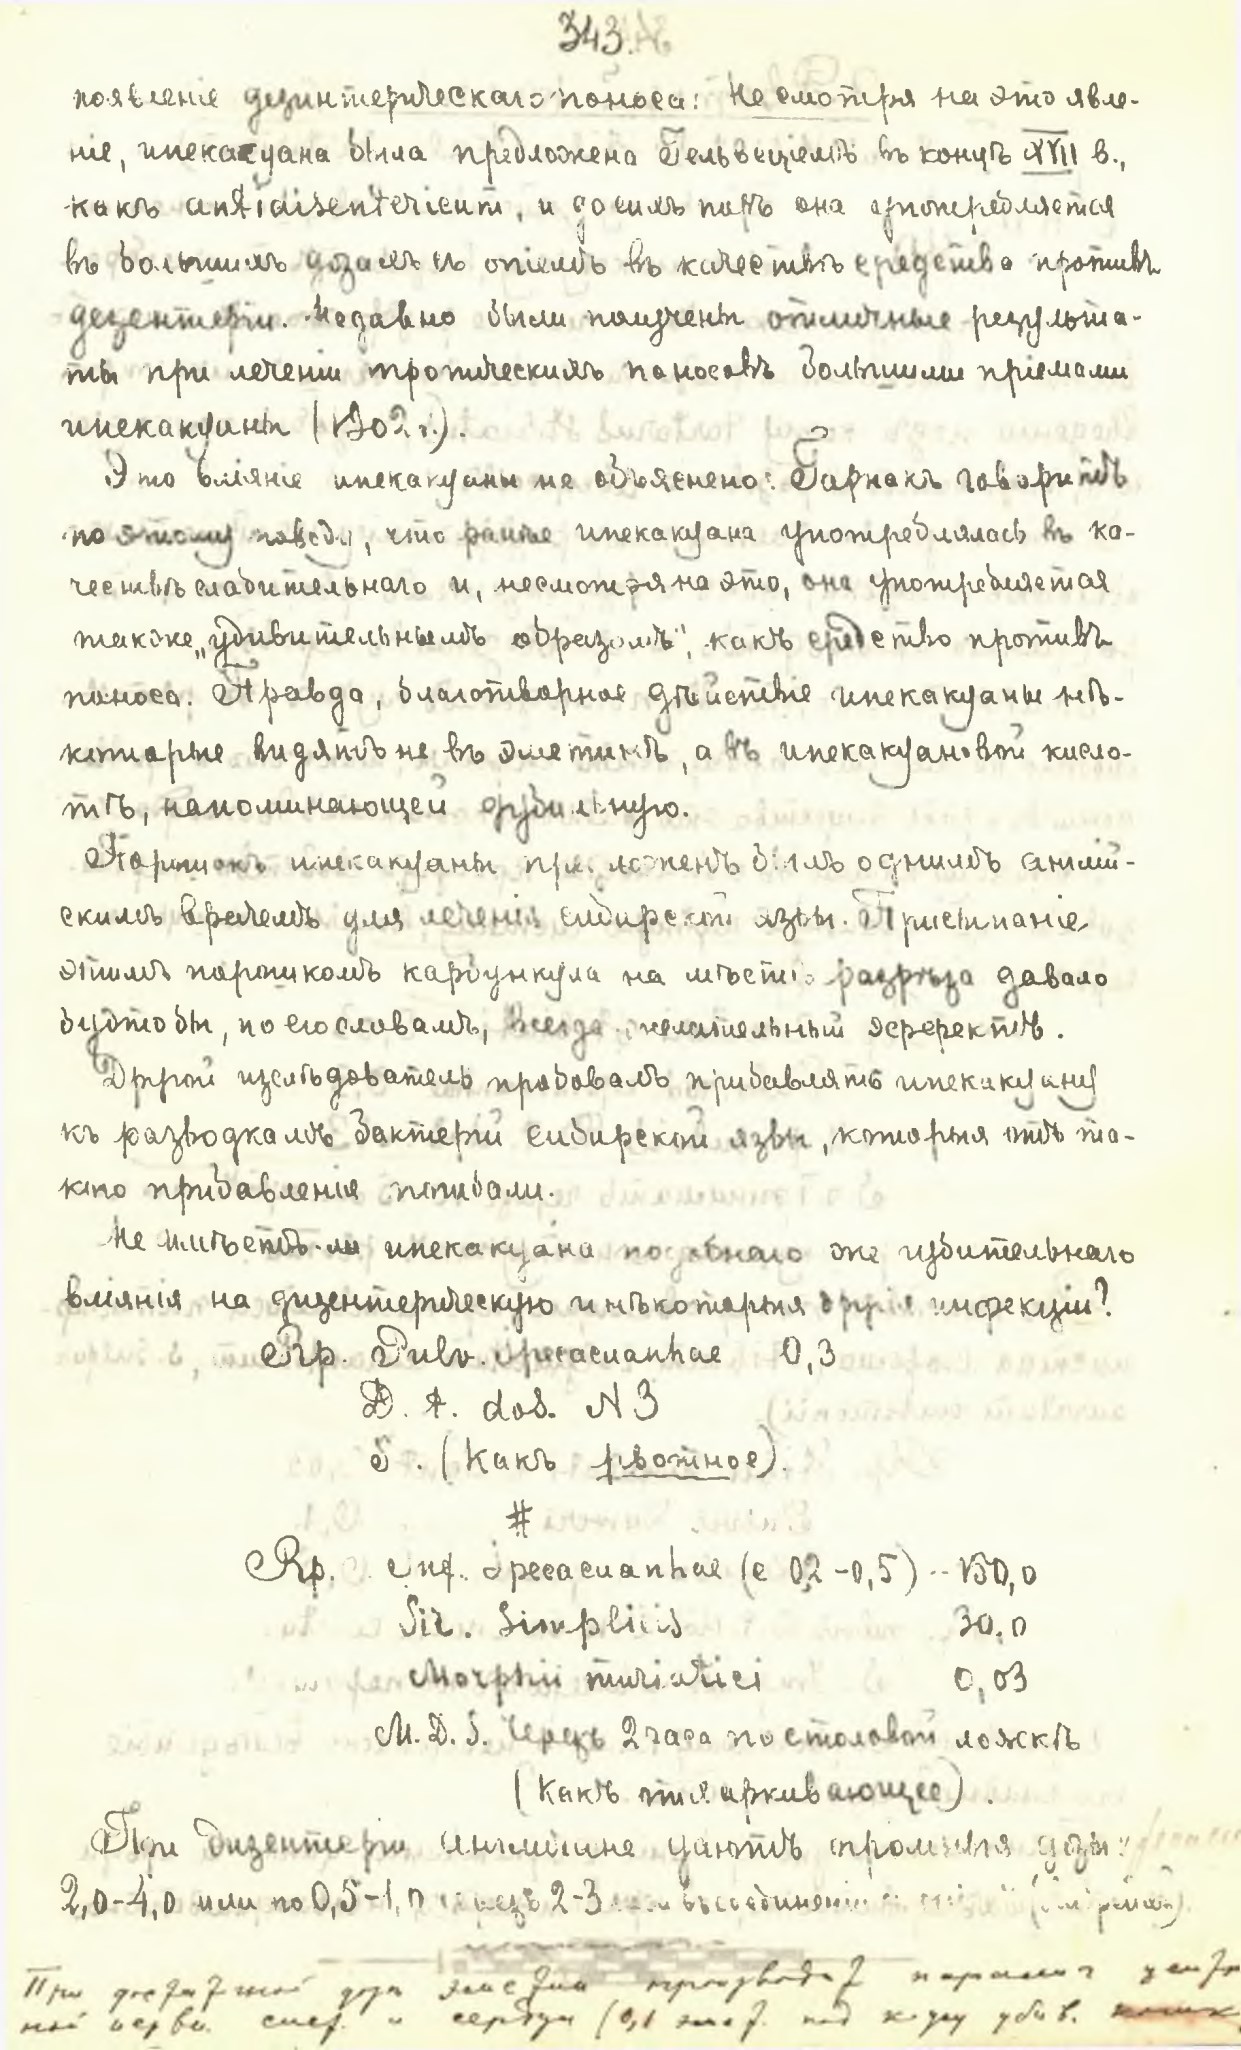 343.
появленіе дезинтерическаго поноса: Не смотря на это явле-
ніе, ипекакуана была предложена Гельвеціемъ въ концѣ XVII в.,
какъ antidisentericum, и до сихъ поръ она употребляется
въ большихъ дозахъ съ опіемъ въ качествѣ средства противъ
дезентеріи. Недавно были получены отличные результа-
ты при леченіи тропическихъ поносовъ большими пріемами
ипекакуаны (1902 г.).
Это вліяніе ипекакуаны не объяснено: Гарнакъ говоритъ
по этому поводу, что раньше ипекакуана употреблялась въ ка-
чествѣ слабительнаго и, несмотря на это, она употребляется
также „удивительнымъ образомъ", какъ средство противъ
поноса. Правда, благотворное дѣйствіе ипекакуаны нѣ-
которые видятъ не въ эметинѣ, а въ ипекакуановой кисло-
тѣ, напоминающей дубильную.
Порошокъ ипекакуаны предложенъ былъ однимъ англій-
скимъ врачемъ для леченія сибирской язвы. Присыпаніе
этимъ порошкомъ карбункула на мѣстѣ разрѣза давало
будтобы, по его словамъ, всегда желательный эффектъ.
Другой изслѣдователь пробовалъ прибавлять ипекакуану
къ разводкамъ бактерій сибирской язвы, которыя отъ та-
кого прибавленія погибали.
Не имѣетъ-ли ипекакуана подобнаго же губительнаго
вліянія на дизентерическую и нѣкоторыя другія инфекціи?
Rp. Pulv. Ipecacuanhae 0,3
D. t. dos. N 3
S. (Какъ рвотное).
#
Rp. Inf. Ipecacuanhae (e 0,2-0,5) -- 150,0
Sir. Simplicis 30,0
Morphii muriatici 0,03
M. D. S. Черезъ 2 часа по столовой ложкѣ
(Какъ отхаркивающее).
При дизентеріи англичане даютъ огромныя дозы:
2,0-4,0 или по 0,5-1,0 черезъ 2-3 въ соединеніи
При дозу эметин производ. паралич центр
ной нервн. сист. и сердца (0,1 эмет. под кожу убив.